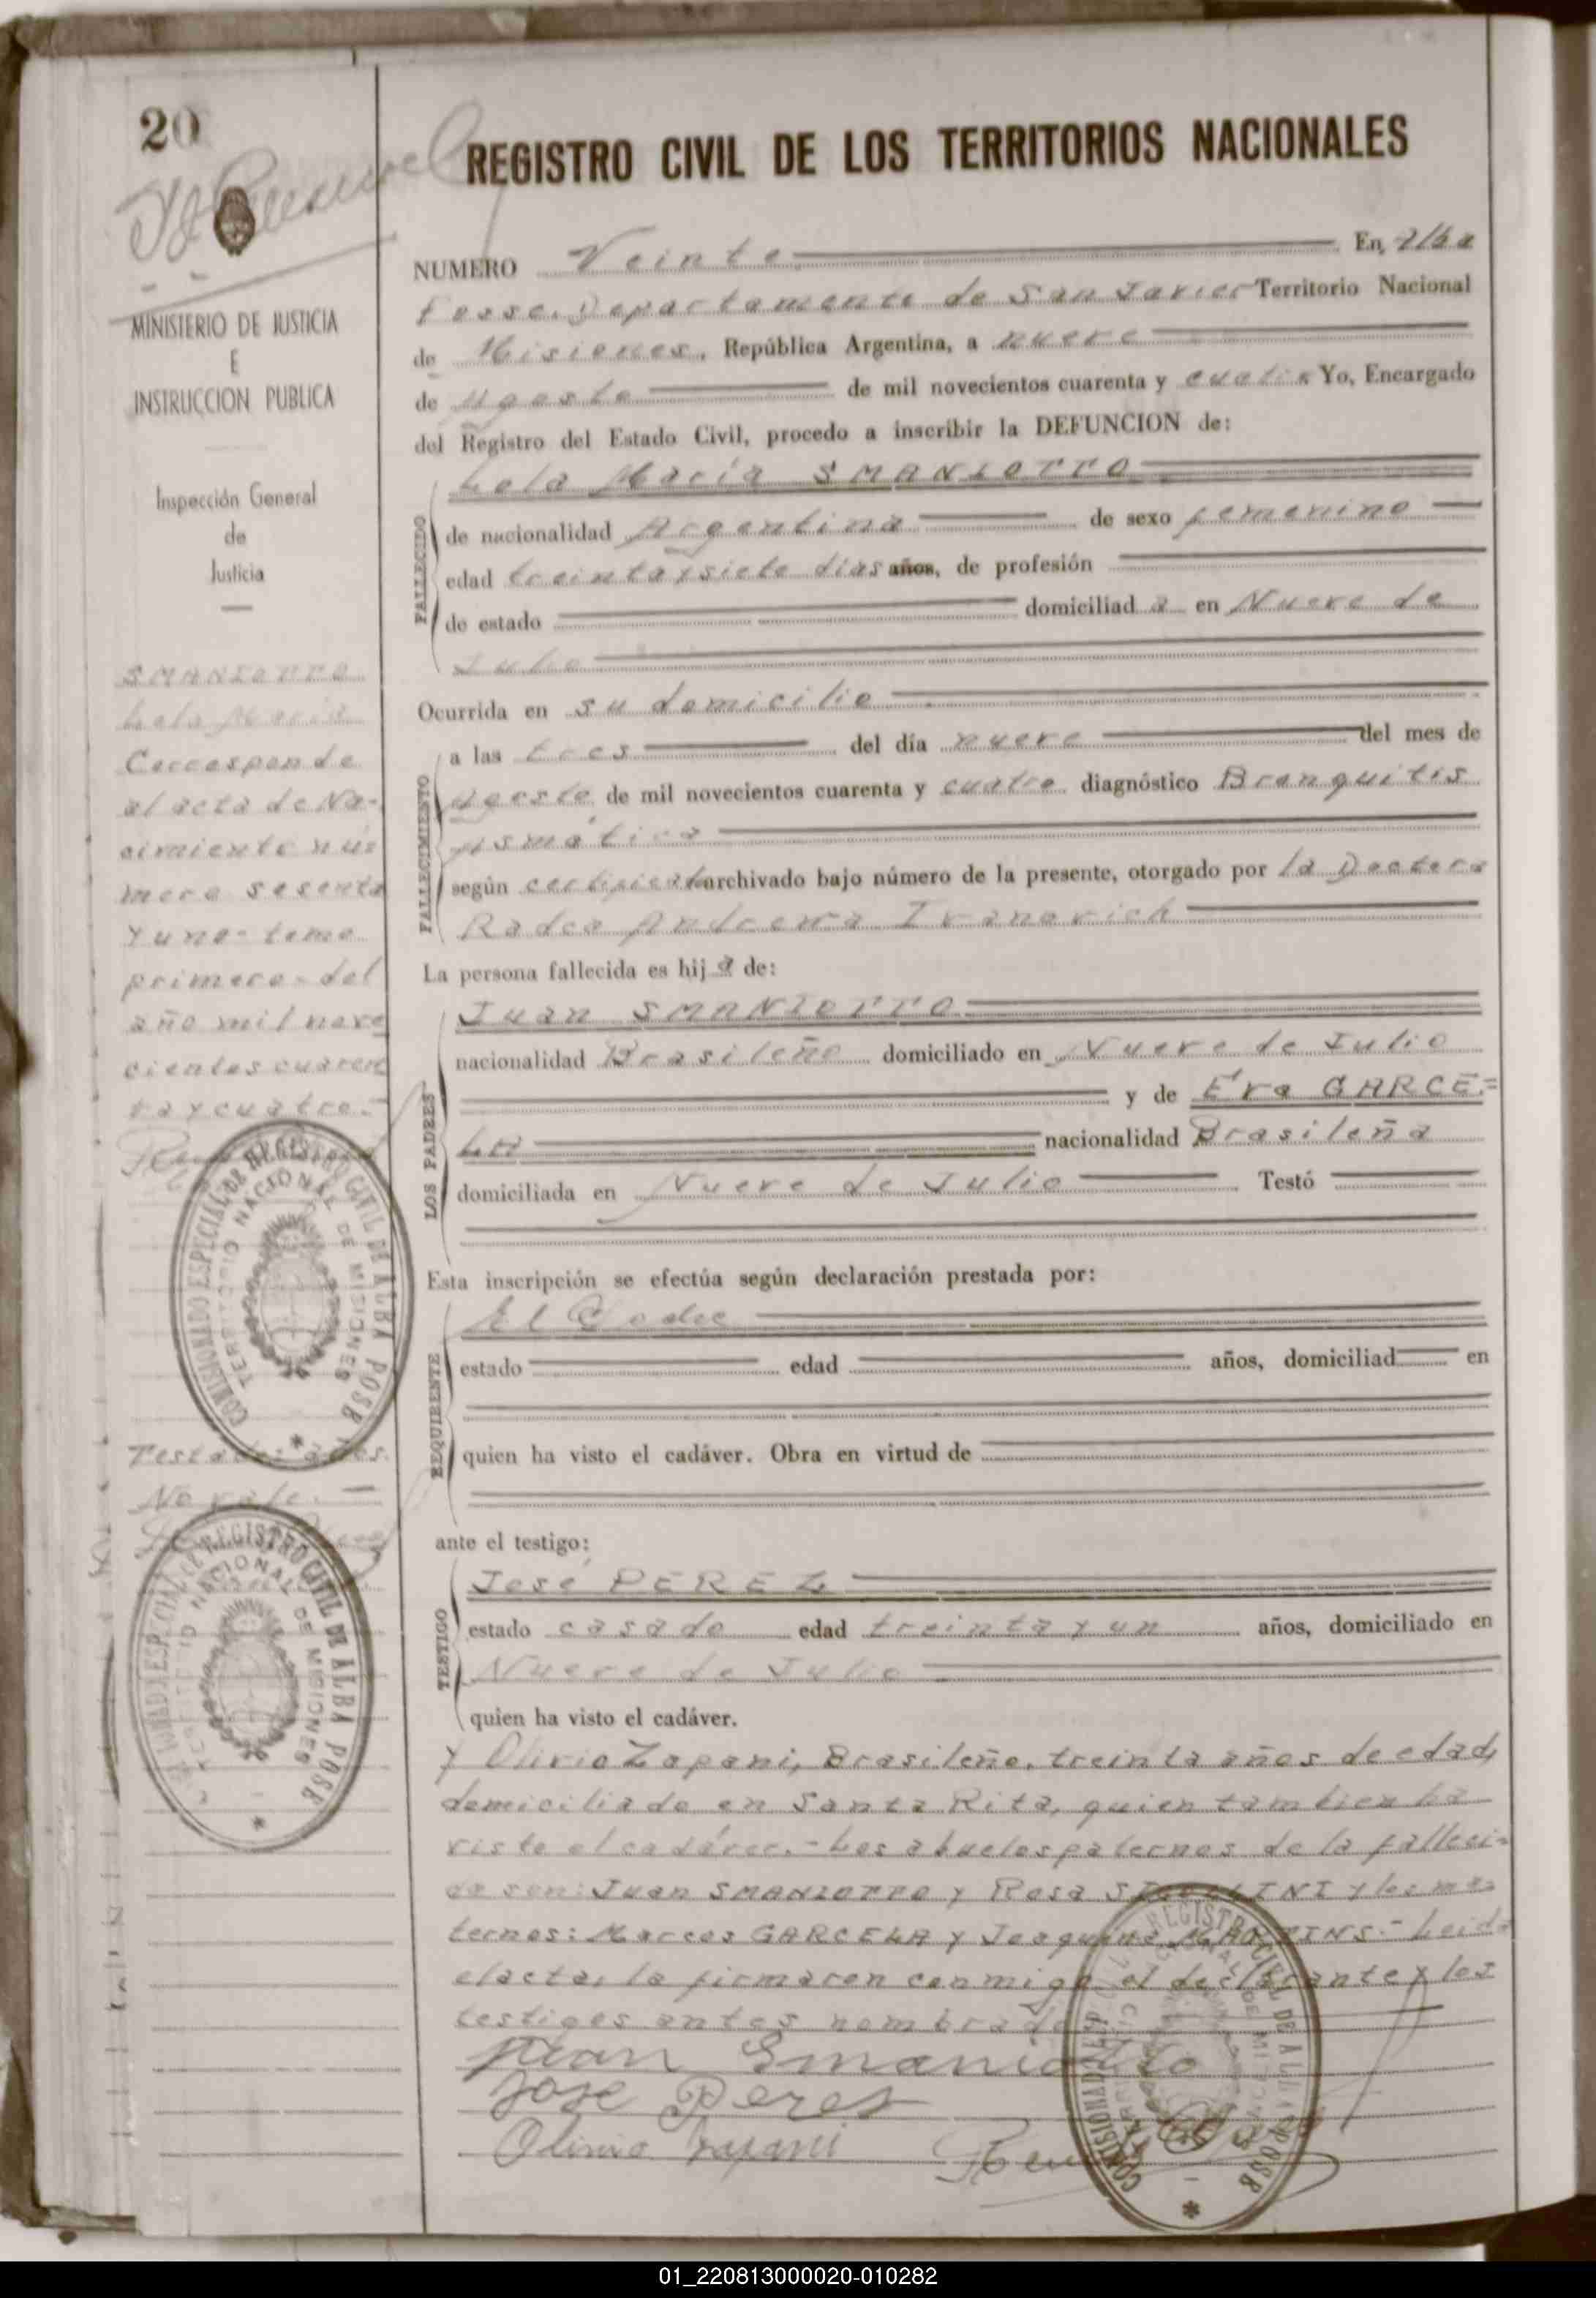 20
REGISTRO CIVIL DE LOS TERRITORIOS NACIONALES
MINISTERIO DE JUSTICIA
E
INSTRUCCION PUBLICA
Inspección General
de
Justicia
SMANIOTTO
Lola María
Corresponde
al acta de Na-
cimiento nú=
mero sesenta
y uno - tomo
primero - del
año mil nove
cientos cuaren
ta y cuatro.-
COMISIONADO ESPECIAL DE REGISTRO CIVIL DE ALBA POSE
TERRITORIO NACIONAL DE MISIONES
Testado: años.
No vale. —
REGISTRO CIVIL DE ALBA POSE
NACIONAL DE MISIONES
NUMERO Veinte. En, Alba
Posse, Departamento de San Javier Territorio Nacional
de Misiones, República Argentina, a nueve
de Agosto de mil novecientos cuarenta y cuatro Yo, Encargado
del Registro del Estado Civil, procedo a inscribir la DEFUNCION de:
Lola María SMANIOTTO
FALLECIDO
de nacionalidad Argentina de sexo femenino
edad treinta y siete dias años, de profesión
de estado domiciliad a en Nueve de
Julio
Ocurrida en su domicilio
FALLECIMIENTO
a las tres del día nueve del mes de
Agosto de mil novecientos cuarenta y cuatro diagnóstico Bronquitis
Asmática
según certificado archivado bajo número de la presente, otorgado por la Doctora
Radca Andrewa Ivanovich
La persona fallecida es hij a de:
LOS PADRES
Juan SMANIOTTO
nacionalidad Brasileño domiciliado en Nueve de Julio
y de Eva GARCE=
LA nacionalidad Brasileña
domiciliada en Nueve de Julio Testó
Esta inscripción se efectúa según declaración prestada por:
REQUIRENTE
El Padre
estado edad años, domiciliad en
quien ha visto el cadáver. Obra en virtud de
ante el testigo:
TESTIGO
José PEREZ
estado casado edad treinta y un años, domiciliado en
Nueve de Julio
quien ha visto el cadáver.
y Olivio Zapani, Brasileño, treinta años de edad,
domiciliado en Santa Rita, quien tambien ha
visto el cadáver.- Los abuelos paternos de la falleci-
da son: Juan SMANIOTTO y Rosa y los ma=
ternos: Marcos GARCELA y Joaquina MARTINS.- Leida
el acta, la firmaron conmigo el declarante y los
testigos antes nombrados
Juan Smaniotto
Jose Peres
Olivio Zapani
COMISIONADO ESP REGISTRO CIVIL DE ALBA POSE
01_220813000020-010282